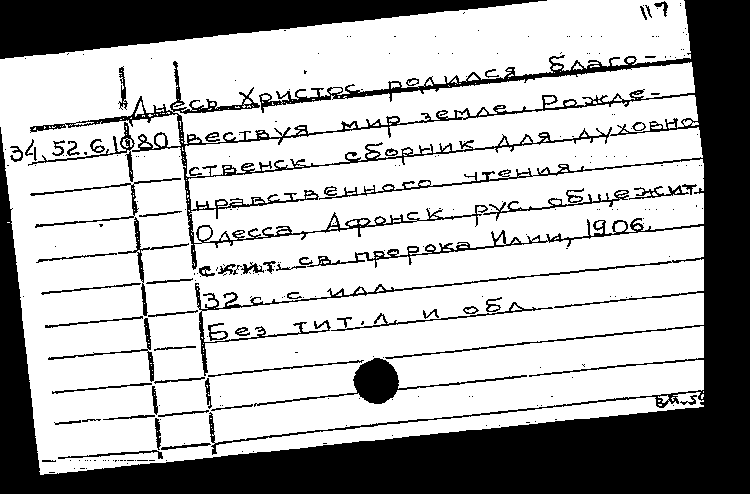 117
Днесь Христос родился, благо-
34.52.6.1980 вествуя мир земле. Рожде-
ственск. сборник для духовно
нравственного чтения.
Одесса, Афонск. рус. общежит.
скит. св. пророка Илии, 1906.
32 с. с илл.
Без тит. л. и обл.